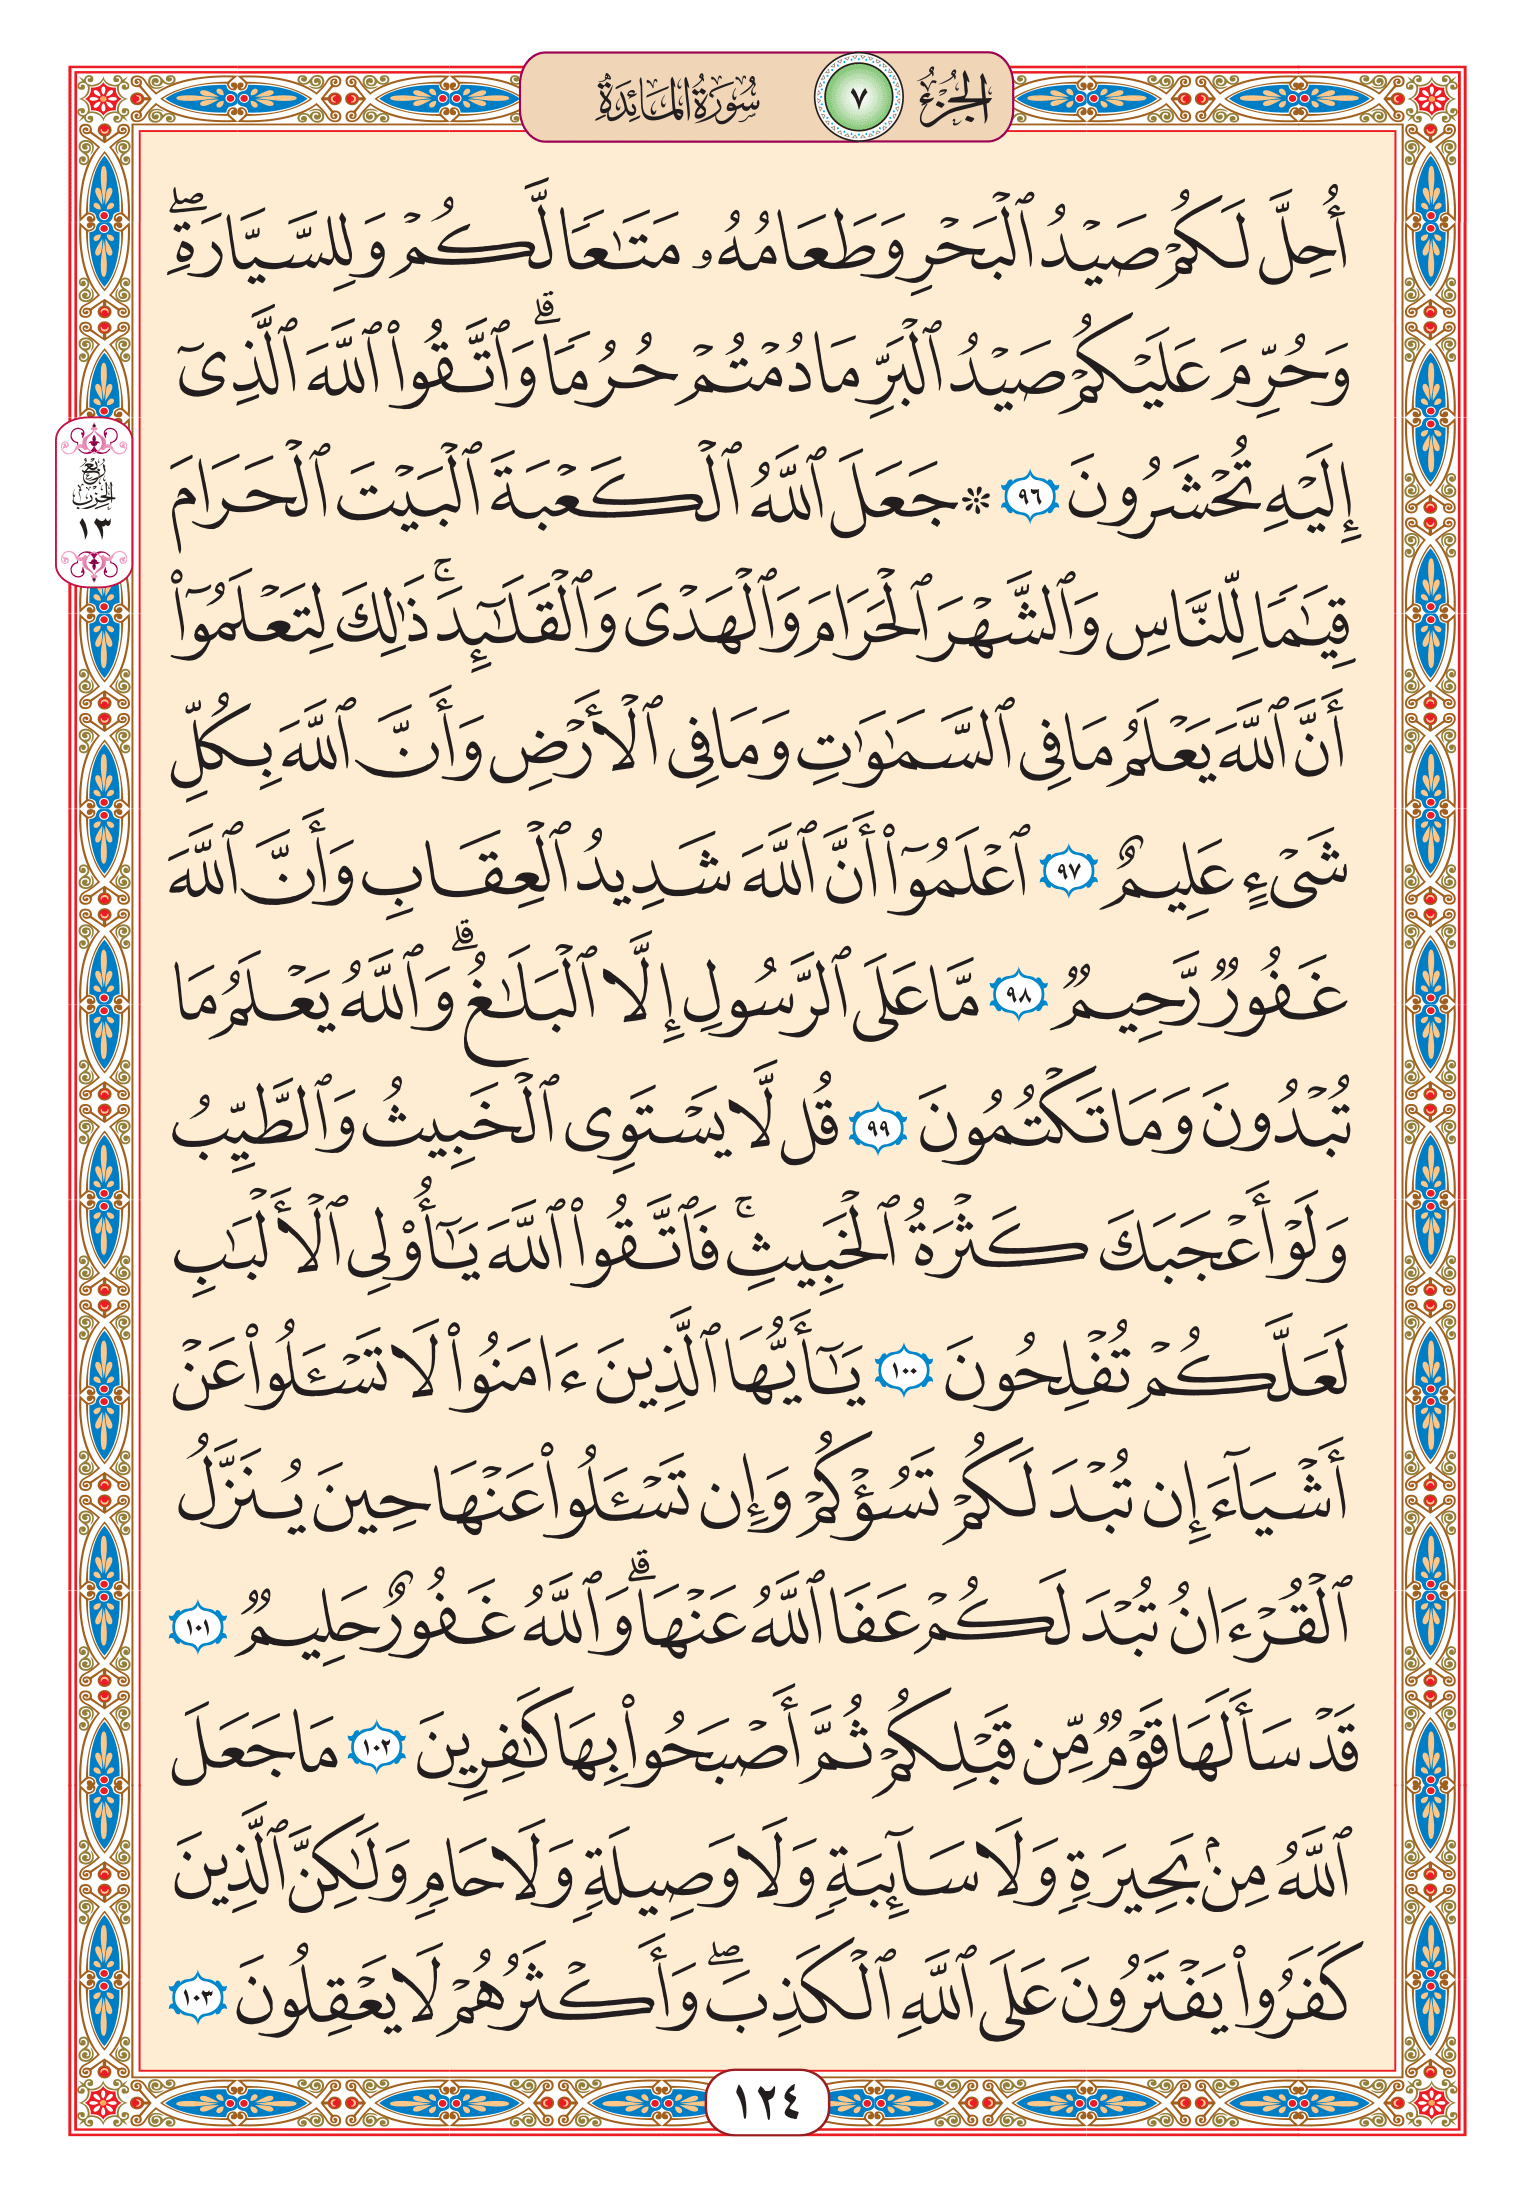 الجُزْءُ ٧ سُورَةُ المَائِدَةِ
أُحِلَّ لَكُمْ صَيْدُ ٱلْبَحْرِ وَطَعَامُهُۥ مَتَٰعًا لَّكُمْ وَلِلسَّيَّارَةِۖ
وَحُرِّمَ عَلَيْكُمْ صَيْدُ ٱلْبَرِّ مَا دُمْتُمْ حُرُمًاۗ وَٱتَّقُوا۟ ٱللَّهَ ٱلَّذِىٓ
إِلَيْهِ تُحْشَرُونَ ٩٦ ۞ جَعَلَ ٱللَّهُ ٱلْكَعْبَةَ ٱلْبَيْتَ ٱلْحَرَامَ
رُبْعُ الحِزْب ١٣
قِيَٰمًا لِّلنَّاسِ وَٱلشَّهْرَ ٱلْحَرَامَ وَٱلْهَدْىَ وَٱلْقَلَٰٓئِدَۚ ذَٰلِكَ لِتَعْلَمُوٓا۟
أَنَّ ٱللَّهَ يَعْلَمُ مَا فِى ٱلسَّمَٰوَٰتِ وَمَا فِى ٱلْأَرْضِ وَأَنَّ ٱللَّهَ بِكُلِّ
شَىْءٍ عَلِيمٌ ٩٧ ٱعْلَمُوٓا۟ أَنَّ ٱللَّهَ شَدِيدُ ٱلْعِقَابِ وَأَنَّ ٱللَّهَ
غَفُورٌ رَّحِيمٌ ٩٨ مَّا عَلَى ٱلرَّسُولِ إِلَّا ٱلْبَلَٰغُۗ وَٱللَّهُ يَعْلَمُ مَا
تُبْدُونَ وَمَا تَكْتُمُونَ ٩٩ قُل لَّا يَسْتَوِى ٱلْخَبِيثُ وَٱلطَّيِّبُ
وَلَوْ أَعْجَبَكَ كَثْرَةُ ٱلْخَبِيثِۚ فَٱتَّقُوا۟ ٱللَّهَ يَٰٓأُو۟لِى ٱلْأَلْبَٰبِ
لَعَلَّكُمْ تُفْلِحُونَ ١٠٠ يَٰٓأَيُّهَا ٱلَّذِينَ ءَامَنُوا۟ لَا تَسْـَٔلُوا۟ عَنْ
أَشْيَآءَ إِن تُبْدَ لَكُمْ تَسُؤْكُمْ وَإِن تَسْـَٔلُوا۟ عَنْهَا حِينَ يُنَزَّلُ
ٱلْقُرْءَانُ تُبْدَ لَكُمْ عَفَا ٱللَّهُ عَنْهَاۗ وَٱللَّهُ غَفُورٌ حَلِيمٌ ١٠١
قَدْ سَأَلَهَا قَوْمٌ مِّن قَبْلِكُمْ ثُمَّ أَصْبَحُوا۟ بِهَا كَٰفِرِينَ ١٠٢ مَا جَعَلَ
ٱللَّهُ مِنۢ بَحِيرَةٍ وَلَا سَآئِبَةٍ وَلَا وَصِيلَةٍ وَلَا حَامٍ وَلَٰكِنَّ ٱلَّذِينَ
كَفَرُوا۟ يَفْتَرُونَ عَلَى ٱللَّهِ ٱلْكَذِبَۖ وَأَكْثَرُهُمْ لَا يَعْقِلُونَ ١٠٣
١٢٤